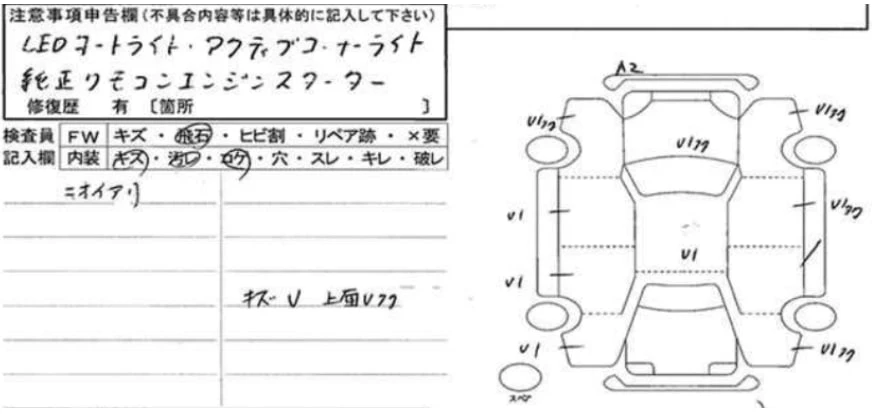 注意事項申告欄(不具合内容等は具体的に記入して下さい)
LEDオートライト・アクティブコーナーライト
純正リモコンエンジンスターター
修復歴 有 〔箇所 〕
検査員 FW キズ・飛石・ヒビ割・リペア跡・×要
記入欄 内装 キズ・汚レ・コゲ・穴・スレ・キレ・破レ
ニオイアリ
キズ U 上面Uフク
A2
U1フク
U1フク
U1フク
U1
U1フク
U1
U1
U1
U1フク
スペア